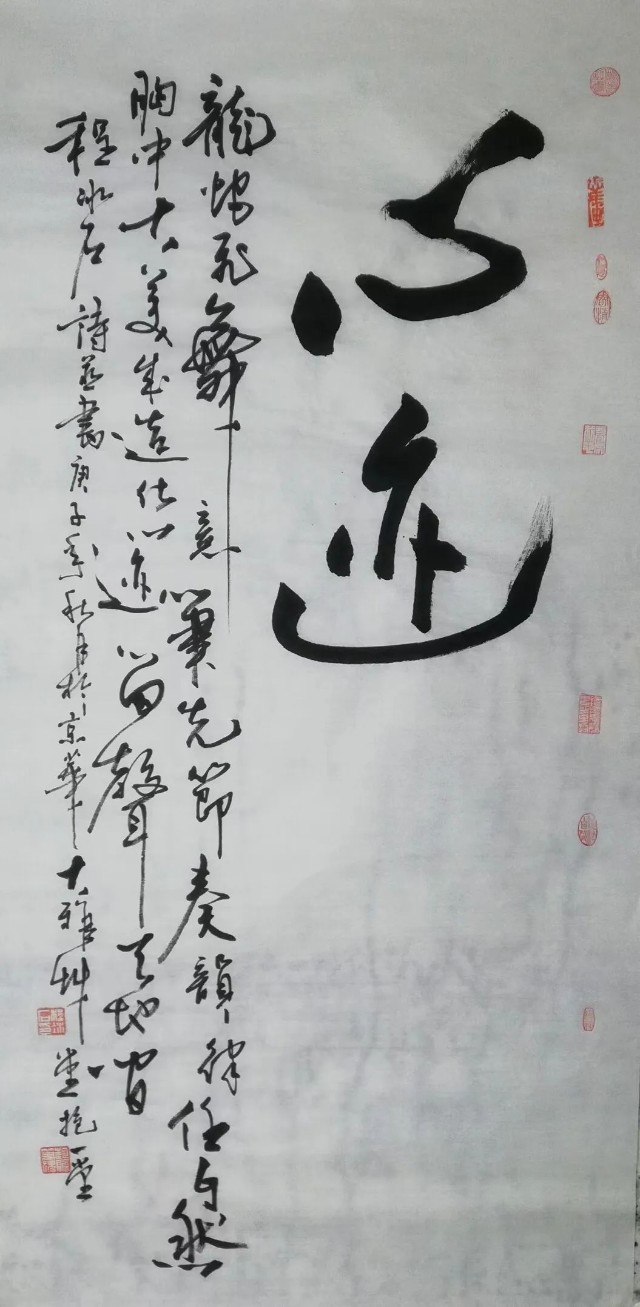 心迹
龍蛇飛舞意筆先節奏韻律任自然
胸中大美成造化心迹心留聲天地間
程冰石詩並書庚子季秋月於京華大雅艸堂抱璽